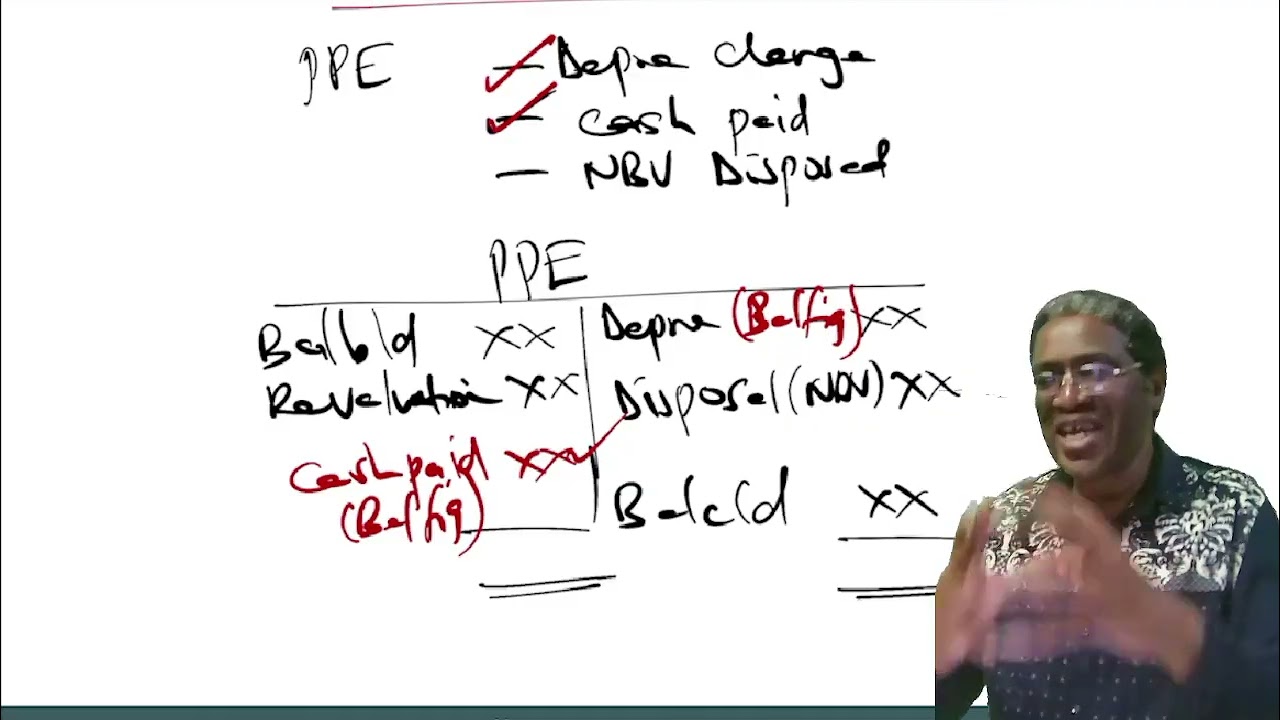 PPE
— Depre charge
— cash paid
— NBV Disposed
PPE
Bal b/d xx Depre (Bal fig) xx
Revaluation xx Disposal (NBV) xx
Cash paid xx
(Bal fig)
Bal c/d xx